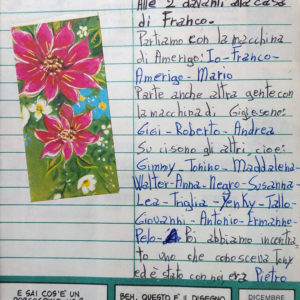 Alle 2 davanti alla casa
di Franco.
Partiamo con la macchina
di Amerigo: Io-Franco-
Amerigo-Mario
Parte anche altra gente con
la macchina di Gigiesone:
Gigi-Roberto-Andrea
Su ci sono gli altri, cioè:
Gimmy-Tonino-Maddalena-
Walter-Anna-Negro-Susanna-
Lea-Triglia-Yenky-Tallo-
Giovanni-Antonio-Ermanne-
Pelo- Poi abbiamo incontra
to uno che conosceva Tony
ed è stato con noi era Pietro
E SAI COS'È UN
BEH, QUESTO È IL DISEGNO
DICEMBRE